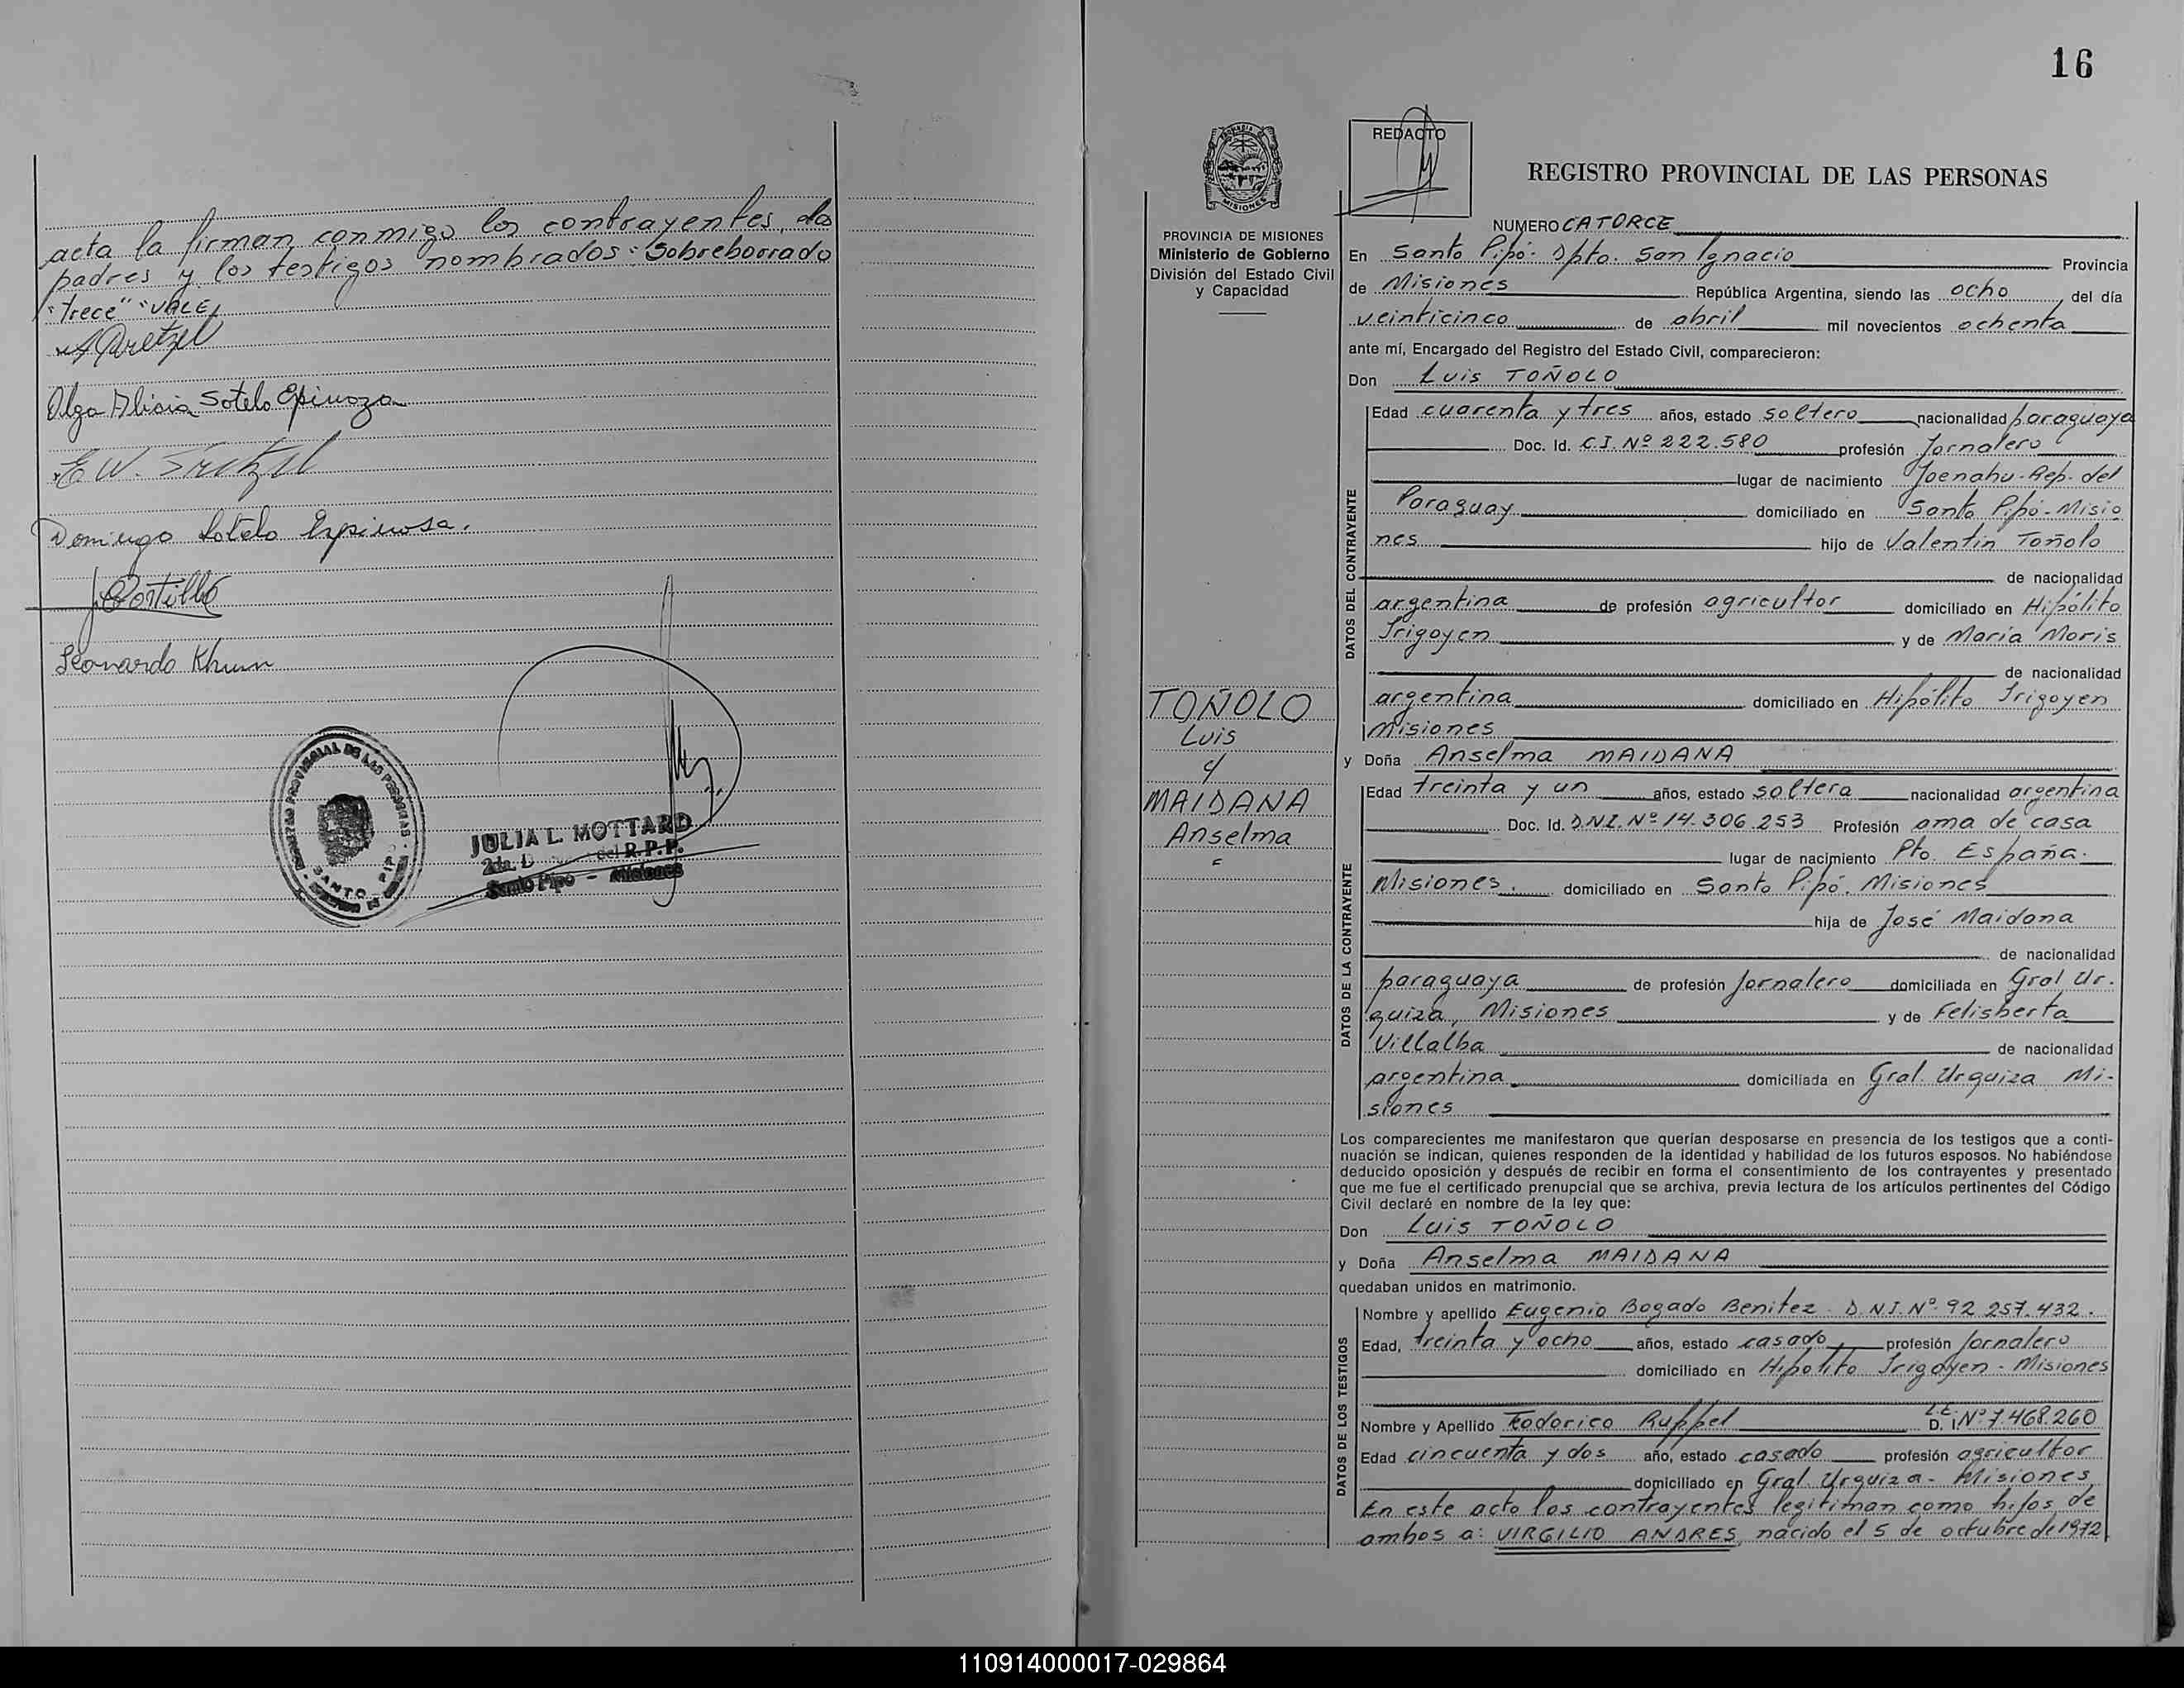 acta la firman conmigo los contrayentes, los
padres y los testigos nombrados: Sobreborrado
"trece" "VALE"
Olga Alicia Sotelo Epinoza
Domingo Sotelo Espinosa.
J. Portillo
Leonardo Khun
REGISTRO PROVINCIAL DE LAS PERSONAS
SANTO PIPO
JULIA L. MOTTARD
2da. del R.P.P.
Santo Pipo - Misiones
16
PROVINCIA DE MISIONES
Ministerio de Gobierno
División del Estado Civil
y Capacidad
TOÑOLO
Luis
c/
MAIDANA
Anselma
REDACTO
REGISTRO PROVINCIAL DE LAS PERSONAS
NUMERO CATORCE
En Santo Pipó. Dpto. San Ignacio Provincia
de Misiones República Argentina, siendo las ocho del día
veinticinco de abril mil novecientos ochenta
ante mí, Encargado del Registro del Estado Civil, comparecieron:
Don Luis TOÑOLO
DATOS DEL CONTRAYENTE
Edad cuarenta y tres años, estado soltero nacionalidad paraguaya
Doc. Id. C.I. Nº 222.580 profesión Jornalero
lugar de nacimiento Joenahu-Rep. del
Paraguay domiciliado en Santo Pipó-Misio
nes hijo de Valentin Toñolo
de nacionalidad
argentina de profesión agricultor domiciliado en Hipólito
Irigoyen y de María Moris
de nacionalidad
argentina domiciliado en Hipólito Irigoyen
Misiones
y Doña Anselma MAIDANA
DATOS DE LA CONTRAYENTE
Edad treinta y un años, estado soltera nacionalidad argentina
Doc. Id. D.N.I. Nº 14.306.253 Profesión ama de casa
lugar de nacimiento Pto. España.
Misiones. domiciliado en Santo Pipó. Misiones
hija de José Maidana
de nacionalidad
paraguaya de profesión Jornalero domiciliada en Gral Ur.
quiza, Misiones y de Felisberta
Villalba de nacionalidad
argentina domiciliada en Gral. Urquiza Mi-
siones
Los comparecientes me manifestaron que querían desposarse en presencia de los testigos que a conti-
nuación se indican, quienes responden de la identidad y habilidad de los futuros esposos. No habiéndose
deducido oposición y después de recibir en forma el consentimiento de los contrayentes y presentado
que me fue el certificado prenupcial que se archiva, previa lectura de los artículos pertinentes del Código
Civil declaré en nombre de la ley que:
Don Luis TOÑOLO
y Doña Anselma MAIDANA
quedaban unidos en matrimonio.
DATOS DE LOS TESTIGOS
Nombre y apellido Eugenio Bogado Benitez D.N.I. Nº 92 257.432.
Edad, treinta y ocho años, estado casado profesión Jornalero
domiciliado en Hipólito Irigoyen - Misiones
Nombre y Apellido Fodorico Ruppel L.E. D. I. Nº 7.468.260
Edad cincuenta y dos año, estado casado profesión agricultor
domiciliado en Gral Urquiza - Misiones
En este acto los contrayentes legitiman como hijos de
ambos a: VIRGILIO ANDRES, nacido el 5 de octubre de 1972
110914000017-029864